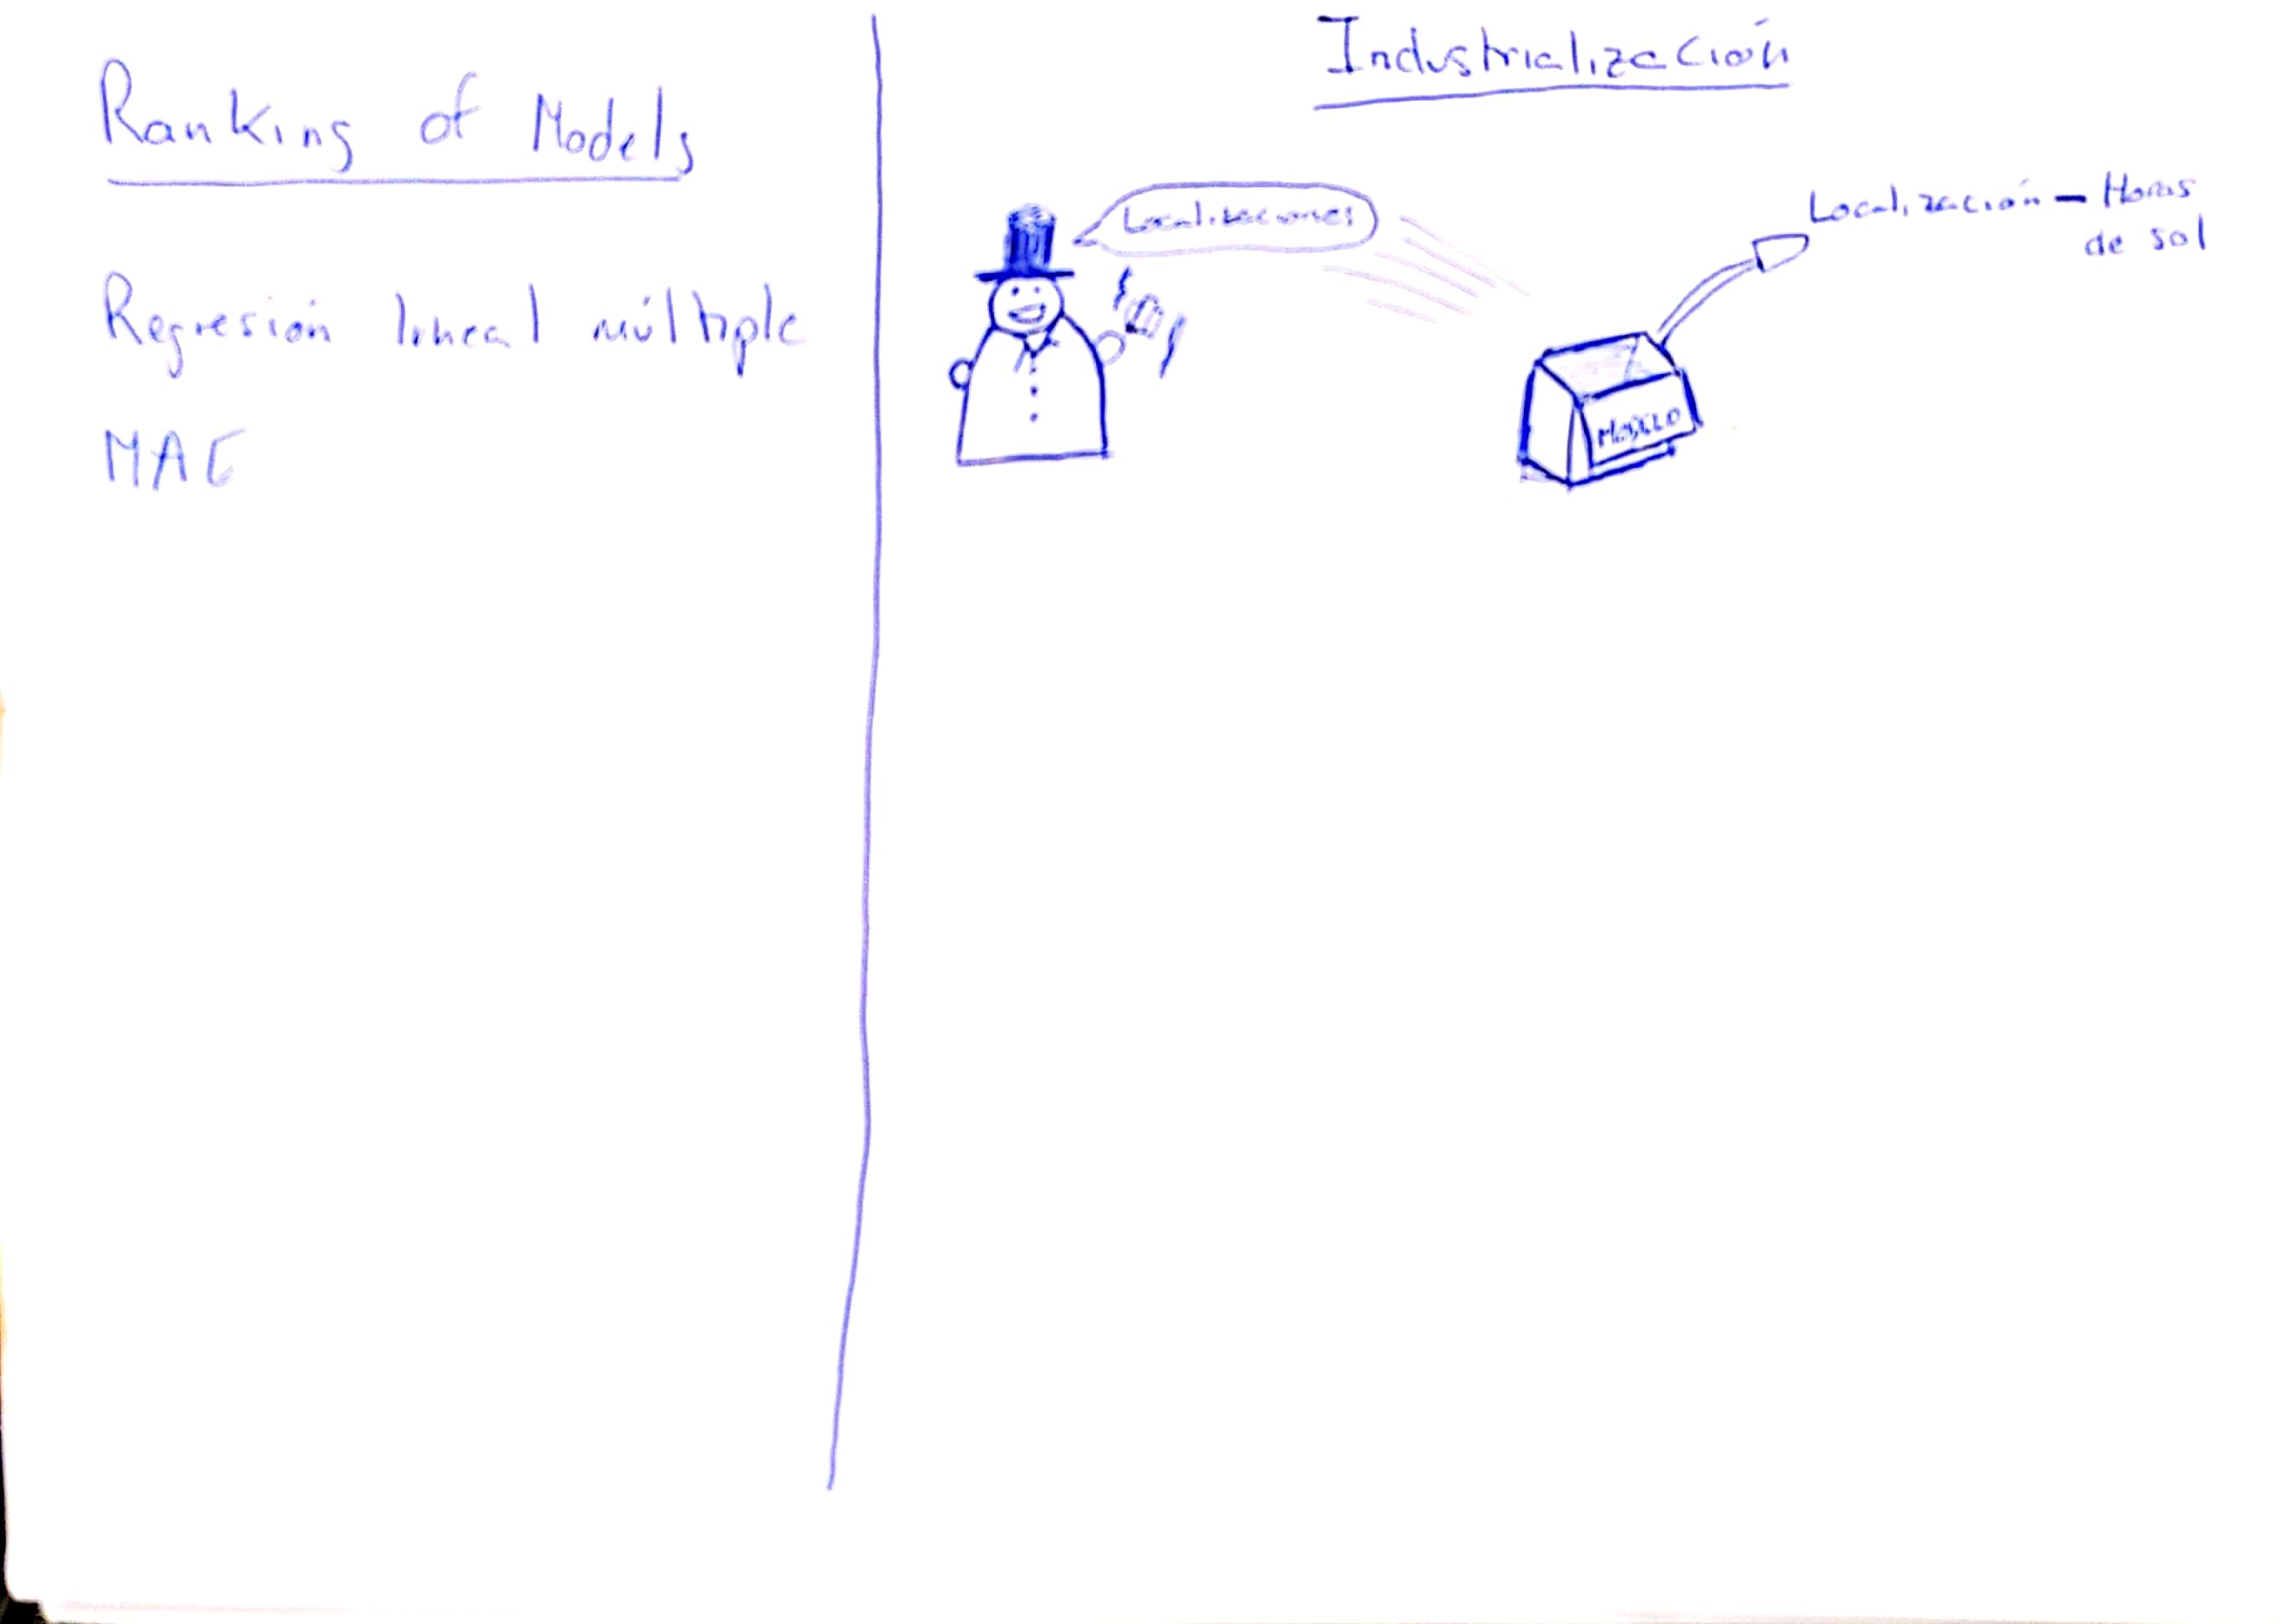 Ranking of Models
Regresión lineal múltiple
MAE
Industrialización
Localizaciones
Localización - Horas
de sol
MODELO